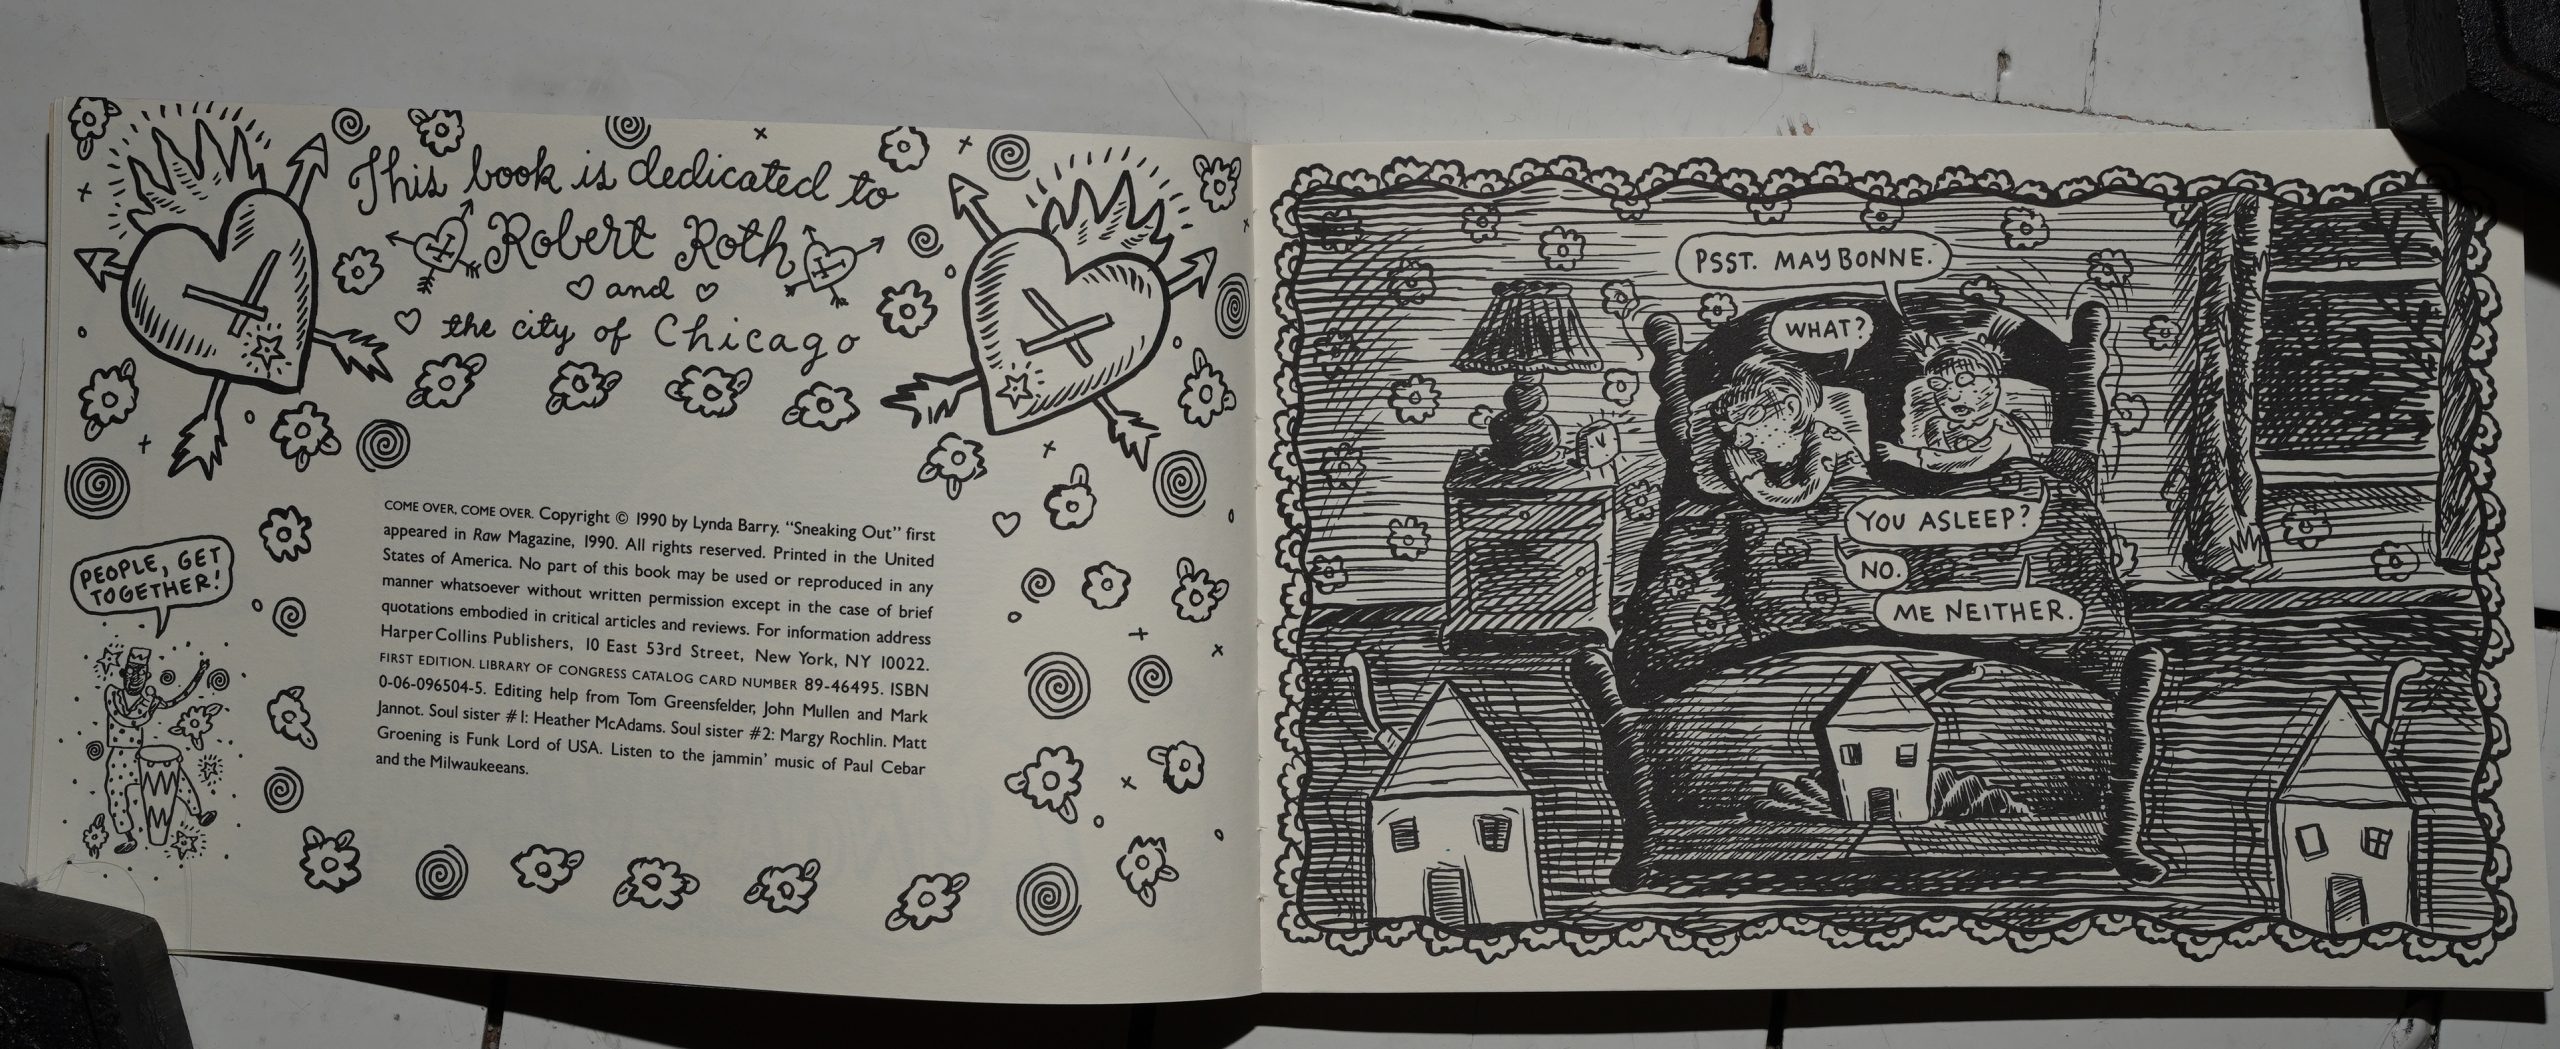 This book is dedicated to
Robert Roth
and
the city of Chicago
COME OVER, COME OVER. Copyright © 1990 by Lynda Barry. “Sneaking Out” first
appeared in Raw Magazine, 1990. All rights reserved. Printed in the United
States of America. No part of this book may be used or reproduced in any
manner whatsoever without written permission except in the case of brief
quotations embodied in critical articles and reviews. For information address
HarperCollins Publishers, 10 East 53rd Street, New York, NY 10022.
FIRST EDITION. LIBRARY OF CONGRESS CATALOG CARD NUMBER 89-46495. ISBN
0-06-096504-5. Editing help from Tom Greensfelder, John Mullen and Mark
Jannot. Soul sister #1: Heather McAdams. Soul sister #2: Margy Rochlin. Matt
Groening is Funk Lord of USA. Listen to the jammin’ music of Paul Cebar
and the Milwaukeeans.
PEOPLE, GET
TOGETHER!
PSST. MAYBONNE.
WHAT?
YOU ASLEEP?
NO.
ME NEITHER.